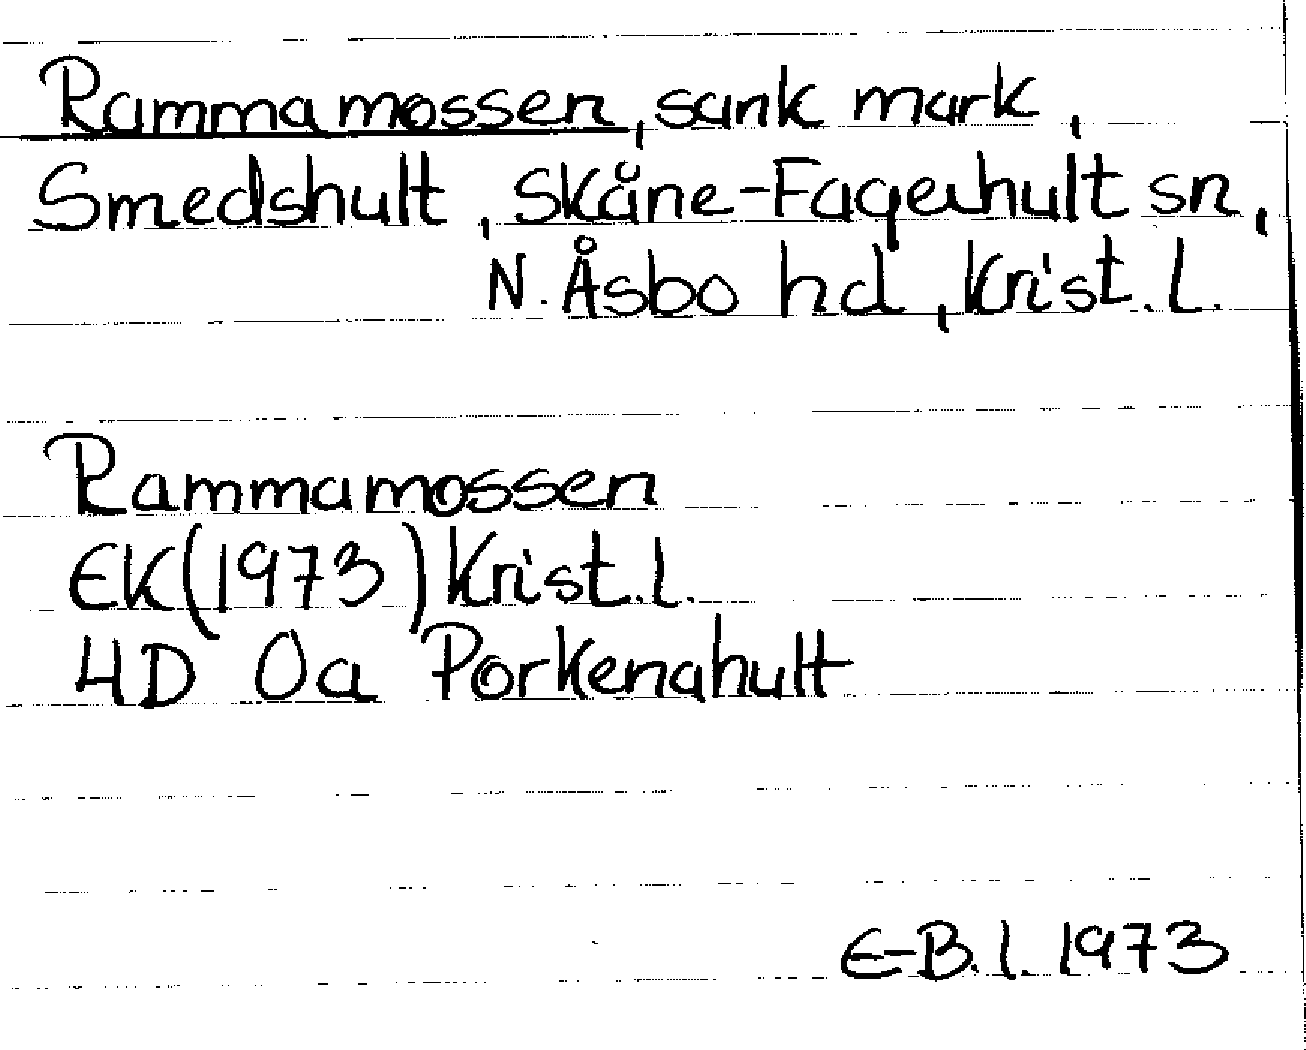 Rammamossen, sank mark,
Smedshult, Skåne-Fagerhult sn,
N. Åsbo hd, Krist. L.
Rammamossen
EK (1973) Krist. l.
4D 0a Porkenahult
E-B. l. 1973